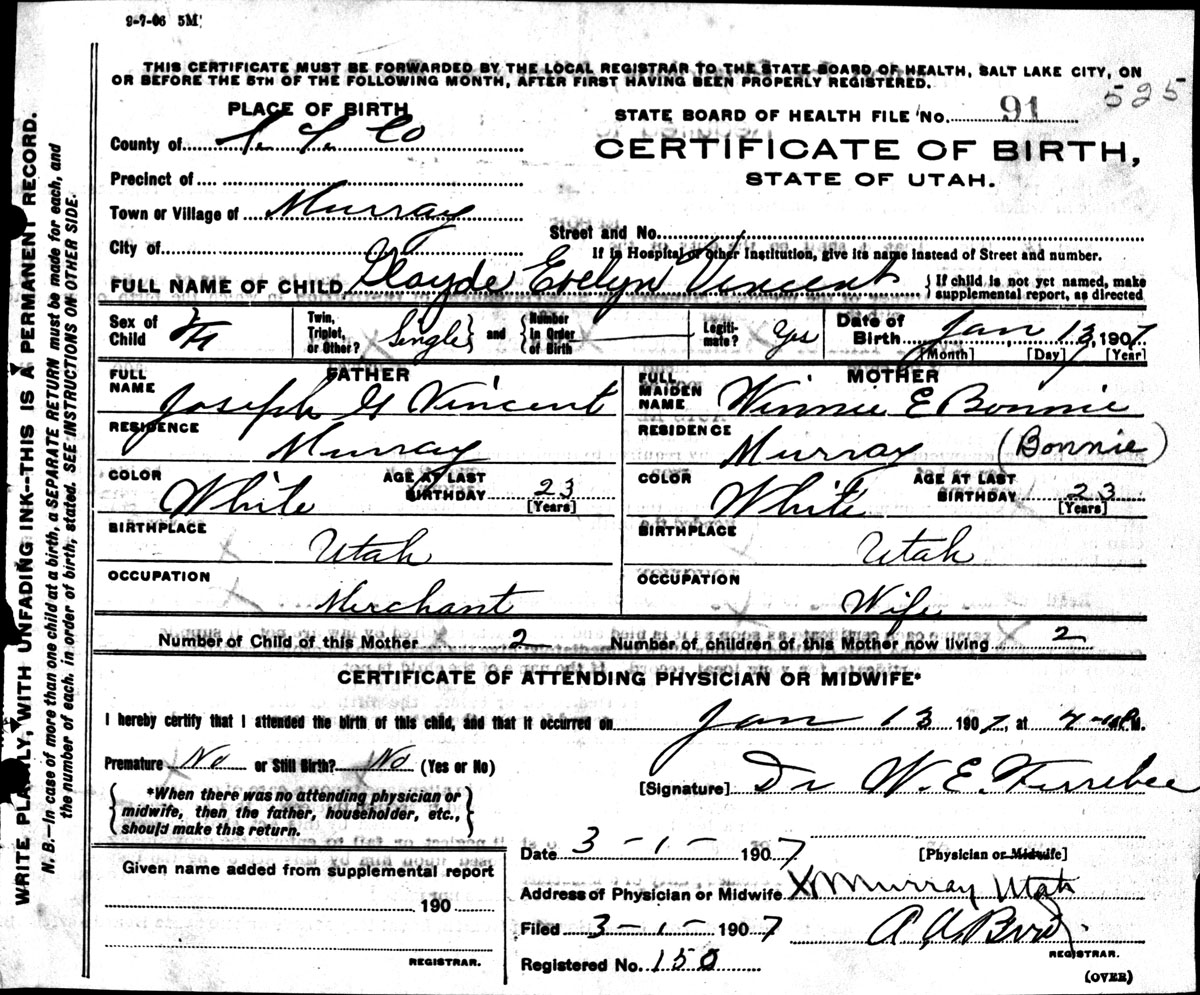 9-7-06 5M
THIS CERTIFICATE MUST BE FORWARDED BY THE LOCAL REGISTRAR TO THE STATE BOARD OF HEALTH, SALT LAKE CITY, ON
OR BEFORE THE 5TH OF THE FOLLOWING MONTH, AFTER FIRST HAVING BEEN PROPERLY REGISTERED.
525
PLACE OF BIRTH
STATE BOARD OF HEALTH FILE No. 91
County of S. L. Co
CERTIFICATE OF BIRTH,
STATE OF UTAH.
Precinct of
Town or Village of Murray
Street and No.
City of
If in Hospital or other Institution, give its name instead of Street and number.
FULL NAME OF CHILD Glayde Evelyn Vincent
If child is not yet named, make
supplemental report, as directed
Sex of Child
Twin, Triplet, or Other? Single and Number In Order of Birth
Legiti-mate? Yes
Date of Birth Jan 13, 1907
[Month] [Day] [Year]
FATHER
FULL NAME Joseph G Vincent
RESIDENCE Murray
COLOR White
AGE AT LAST BIRTHDAY 23
[Years]
BIRTHPLACE Utah
OCCUPATION Merchant
MOTHER
FULL MAIDEN NAME Winnie E Bonnie
RESIDENCE Murray (Bonnie)
COLOR White
AGE AT LAST BIRTHDAY 23
[Years]
BIRTHPLACE Utah
OCCUPATION Wife
Number of Child of this Mother 2 Number of children of this Mother now living 2
CERTIFICATE OF ATTENDING PHYSICIAN OR MIDWIFE*
I hereby certify that I attended the birth of this child, and that it occurred on Jan 13 1907, at M.
Premature No or Still Birth? No (Yes or No)
[Signature] Dr W. E. Ferrebee
*When there was no attending physician or
midwife, then the father, householder, etc.,
should make this return.
Date 3-1- 1907
[Physician or Midwife]
Given name added from supplemental report
190
REGISTRAR.
Address of Physician or Midwife Murray Utah
Filed 3-1- 1907
REGISTRAR.
Registered No. 150
(OVER)
WRITE PLAINLY, WITH UNFADING INK--THIS IS A PERMANENT RECORD.
N. B.—In case of more than one child at a birth, a SEPARATE RETURN must be made for each, and
the number of each, in order of birth, stated. SEE INSTRUCTIONS ON OTHER SIDE.